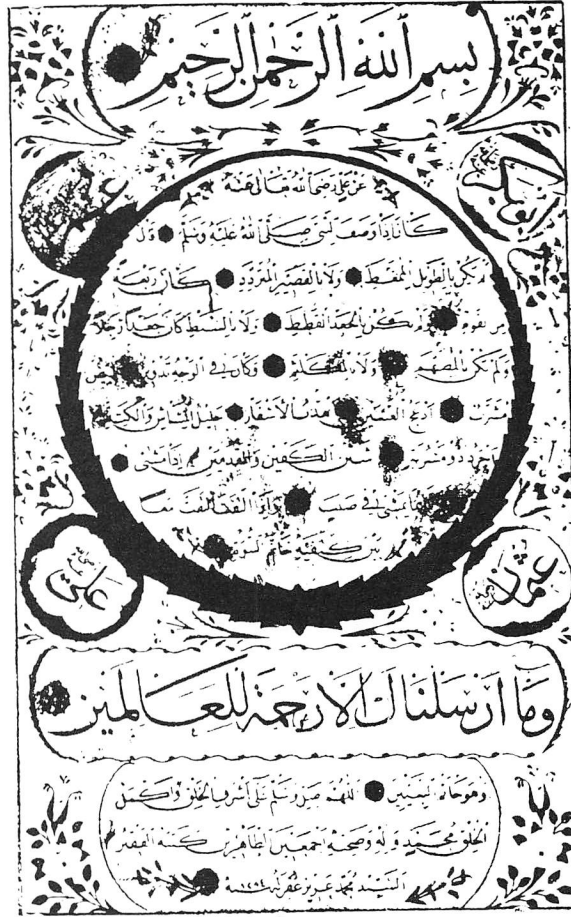 بسم الله الرحمن الرحيم
ابو بكر
عن علي رضي الله تعالى عنه
كان اذا وصف النبي صلى الله عليه وسلم قال
لم يكن بالطويل الممغط ولا بالقصير المتردد كان ربعة
من القوم لم يكن بالجعد القطط ولا بالسبط كان جعدا رجلا
ولم يكن بالمطهم ولا بالمكلثم وكان في الوجه تدوير ابيض
مشرب ادعج العينين اهدب الاشفار جليل المشاش والكتد
اجرد ذو مسربة شثن الكفين والقدمين اذا مشى
يمشي في صبب واذا التفت التفت معا
بين كتفيه خاتم النبوة
عثمان
علي
وما ارسلناك الا رحمة للعالمين
وهو خاتم النبيين اللهم صل وسلم على اشرف الخلق واكمل
الخلق محمد وآله وصحبه اجمعين الطاهرين كتبه الفقير
السيد محمد عزيز غفر له سنة